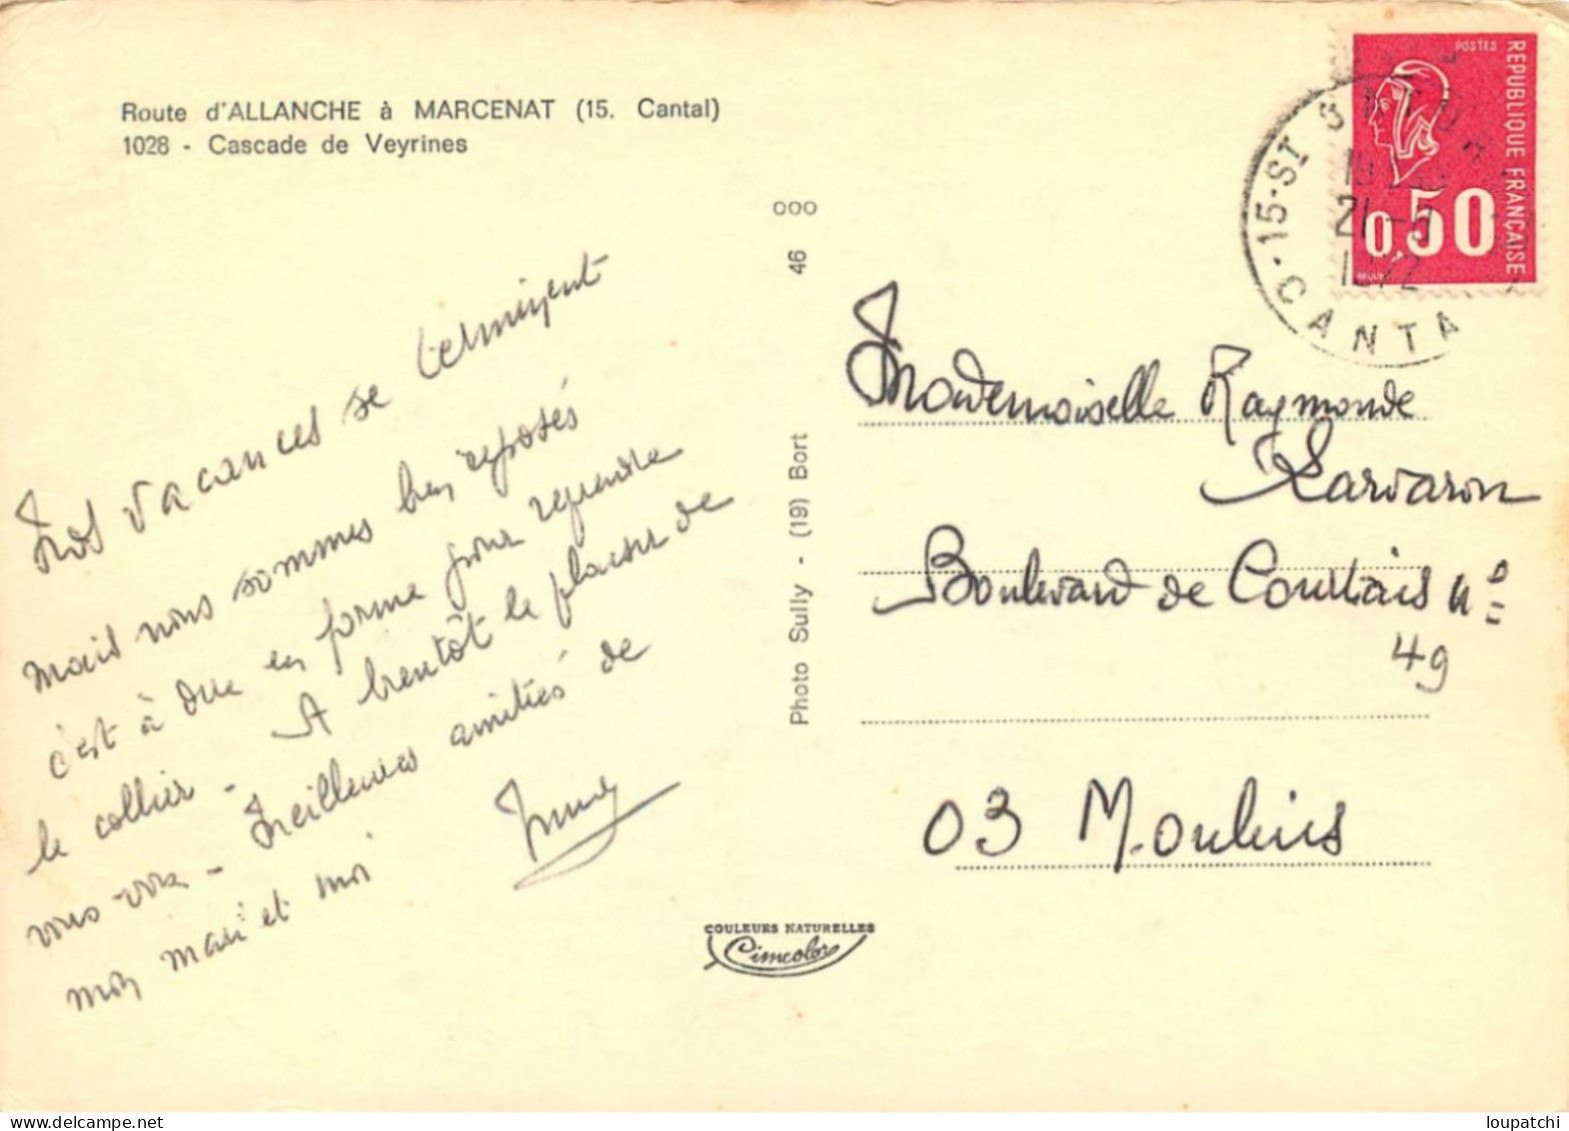 Route d'ALLANCHE à MARCENAT (15. Cantal)
1028 - Cascade de Veyrines
POSTES
REPUBLIQUE FRANÇAISE
0,50
15-ST
CANTA
21-
1972
000
46
Photo Sully - (19) Bort
Nos vacances se terminent
mais nous sommes bien reposés
c'est à dire en forme pour reprendre
le collier - A bientôt le plaisir de
vous voir - Meilleures amitiés de
mon mari et moi
Mademoiselle Raymonde
Larvaron
Boulevard de Courtais nº
49
03 Moulins
COULEURS NATURELLES
Cimcolor
loupatchi